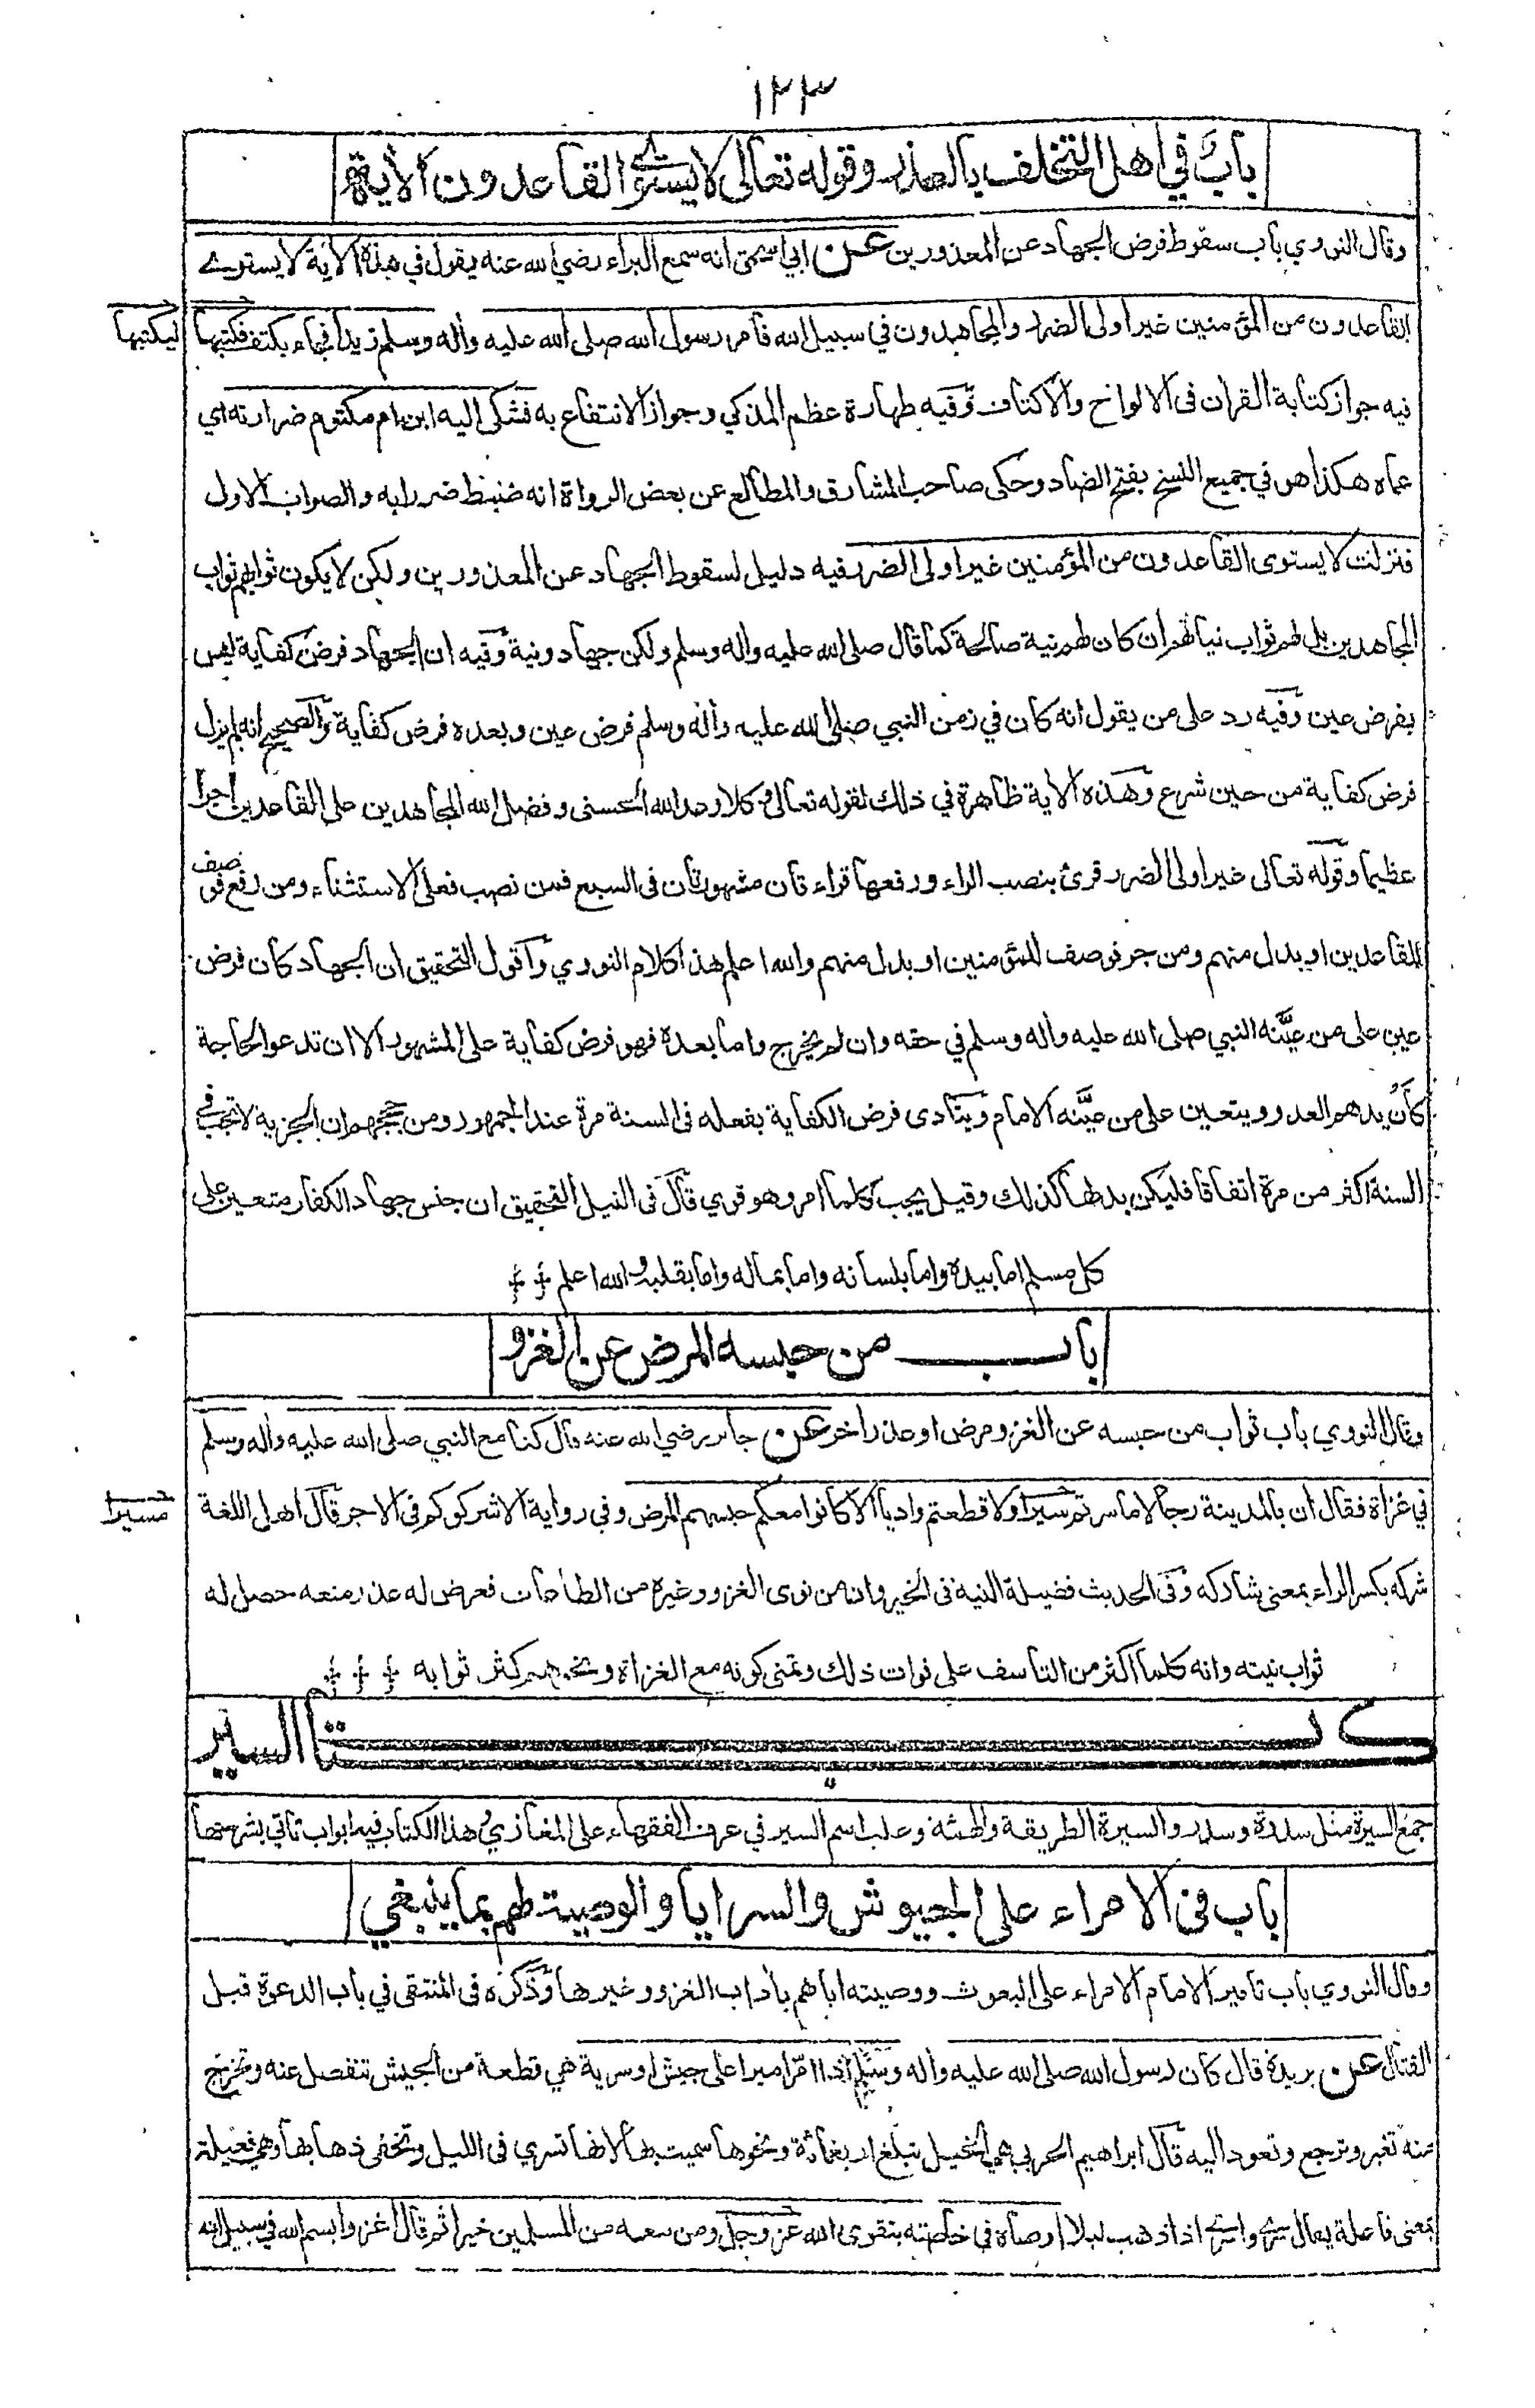 ١٢٣
باب في اهل التخلف بالعذر وقوله تعالى لا يستوي القاعدون الآية
وقال النووي باب سقوط فرض الجهاد عن المعذورين عن ابي اسحق انه سمع البراء رضي الله عنه يقول في هذه الآية لا يستوي
القاعدون من المؤمنين غير اولى الضرر والمجاهدون في سبيل الله فامر رسول الله صلى الله عليه وأله وسلم زيدا فجاء بكتف فكتبها
ليكتبها
فيه جواز كتابة القران فى الالواح والاكتاف وفيه طهارة عظم المذكي وجواز الانتفاع به فشكى اليه ابن ام مكتوم ضرارته اي
عماه هكذا هو في جميع النسخ بفتح الضاد وحكى صاحب المشارق والمطالع عن بعض الرواة انه ضبط ضررا به والصواب الاول
فنزلت لا يستوى القاعدون من المؤمنين غير اولى الضرر فيه دليل لسقوط الجهاد عن المعذورين ولكن لا يكون ثوابهم ثواب
المجاهدين بل لهم ثواب نياتهم ان كان لهم نية صالحة كما قال صلى الله عليه واله وسلم ولكن جهاد ونية وفيه ان الجهاد فرض كفاية ليس
بفرض عين وفيه رد على من يقول انه كان في زمن النبي صلى الله عليه وأله وسلم فرض عين وبعده فرض كفاية والصحيح انه لم يزل
فرض كفاية من حين شرع وهذه الاية ظاهرة في ذلك لقوله تعالى وكلا وعد الله الحسنى وفضل الله المجاهدين على القاعدين اجرا
عظيما وقوله تعالى غير اولى الضرر قرئ بنصب الراء ورفعها قراءتان مشهورتان فى السبع فمن نصب فعلى الاستثناء ومن رفع فوصف
للقاعدين او بدل منهم ومن جر فوصف للمؤمنين او بدل منهم والله اعلم هذا كلام النووي وأقول التحقيق ان الجهاد كان فرض
عين على من عينه النبي صلى الله عليه وأله وسلم في حقه وان لم يخرج واما بعده فهو فرض كفاية على المشهور الا ان تدعو الحاجة
كأن يدهم العدو ويتعين على من عيَّنه الامام ويتادى فرض الكفاية بفعله فى السنة مرة عند الجمهور ومن حججهم ان الجزية لا تجب في
السنة اكثر من مرة اتفاقا فليكن بدلها كذلك وقيل يجب كلما امر وهو قوي قال فى النيل التحقيق ان جنس جهاد الكفار متعين على
كل مسلم اما بيده واما بلسانه واما بماله واما بقلبه والله اعلم
باب من حبسه المرض عن الغزو
وقال النووي باب ثواب من حبسه عن الغزو مرض او عذر اخر عن جابر رضي الله عنه قال كنا مع النبي صلى الله عليه واله وسلم
في غزاة فقال ان بالمدينة رجالا ما سرتم مسيرا ولا قطعتم واديا الا كانوا معكم حبسهم المرض وفي رواية الا شركوكم فى الاجر قال اهل اللغة
مسيرا
شركه بكسر الراء بمعنى شاركه وفى الحديث فضيلة النية فى الخير وان من نوى الغزو وغيره من الطاعات فعرض له عذر منعه حصل له
ثواب نيته وانه كلما اكثر من التاسف على فوات ذلك وتمنى كونه مع الغزاة ونحوهم كثر ثوابه
كتاب السير
جمع السيرة مثل سدرة وسدر والسيرة الطريقة والهيئة وغلب اسم السير في عرف الفقهاء على المغازي وهذا الكتاب فيه ابواب تاتي بشرحها
باب فى الامراء على الجيوش والسرايا والوصية لهم بما ينبغي
وقال النووي باب تامير الامام الامراء على البعوث ووصيته اياهم بأداب الغزو وغيرها وذكره فى المنتقى في باب الدعوة قبل
القتال عن بريدة قال كان رسول الله صلى الله عليه وأله وسلم اذا امّر اميرا على جيش او سرية هي قطعة من الجيش تنفصل عنه وتخرج
منه تغير وترجع وتعود اليه قال ابراهيم الحربي هي الخيل تبلغ اربعمائة ونحوها سميت بها لانها تسري في الليل وتخفى ذهابها وهي فعيلة
بمعنى فاعلة يقال سرى واسرى اذا ذهب ليلا اوصاه في خاصته بتقوى الله عز وجل ومن معه من المسلمين خيرا ثم قال اغزوا بسم الله في سبيل الله